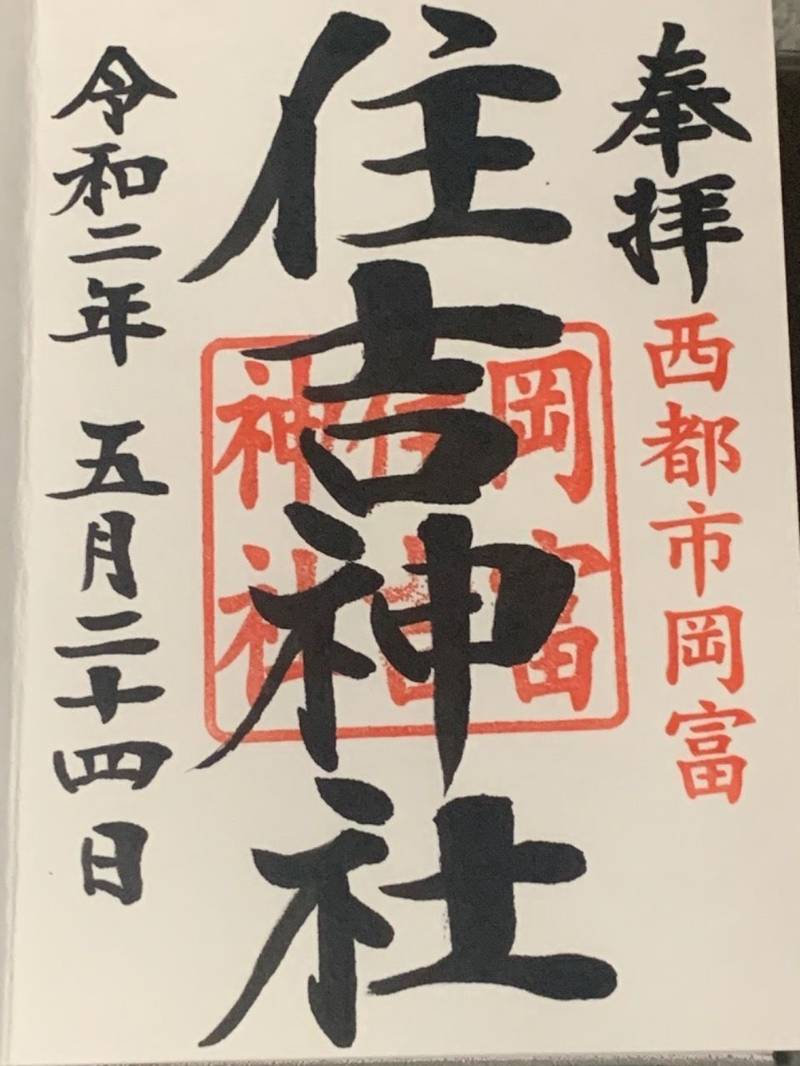 奉拝
西都市岡富
住吉神社
岡富
住吉
神社
令和二年 五月二十四日